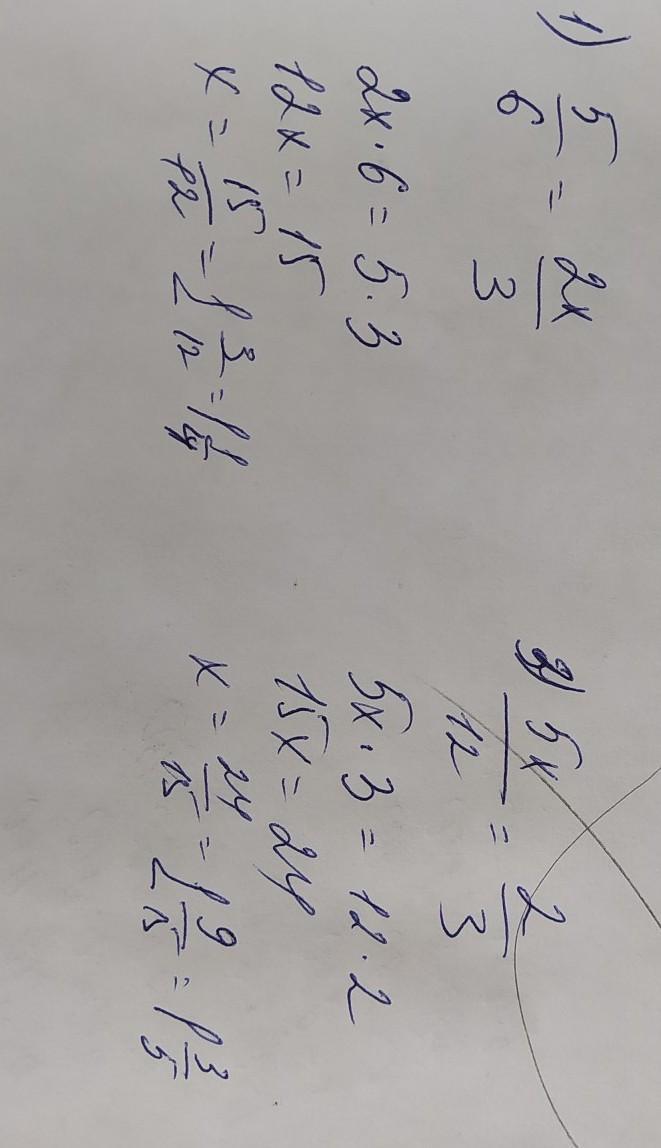 1) 5/6 = 2x/3
2x · 6 = 5 · 3
12x = 15
x = 15/12 = 1 3/12 = 1 1/4
2) 5x/12 = 2/3
5x · 3 = 12 · 2
15x = 24
x = 24/15 = 1 9/15 = 1 3/5